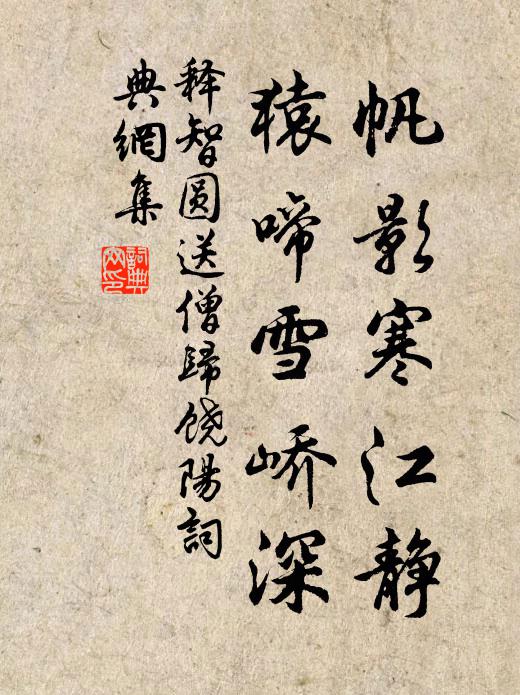 帆影寒江静
猿啼雪峤深
释智圆送僧歸饶陽詞
典網集
詞典
网印